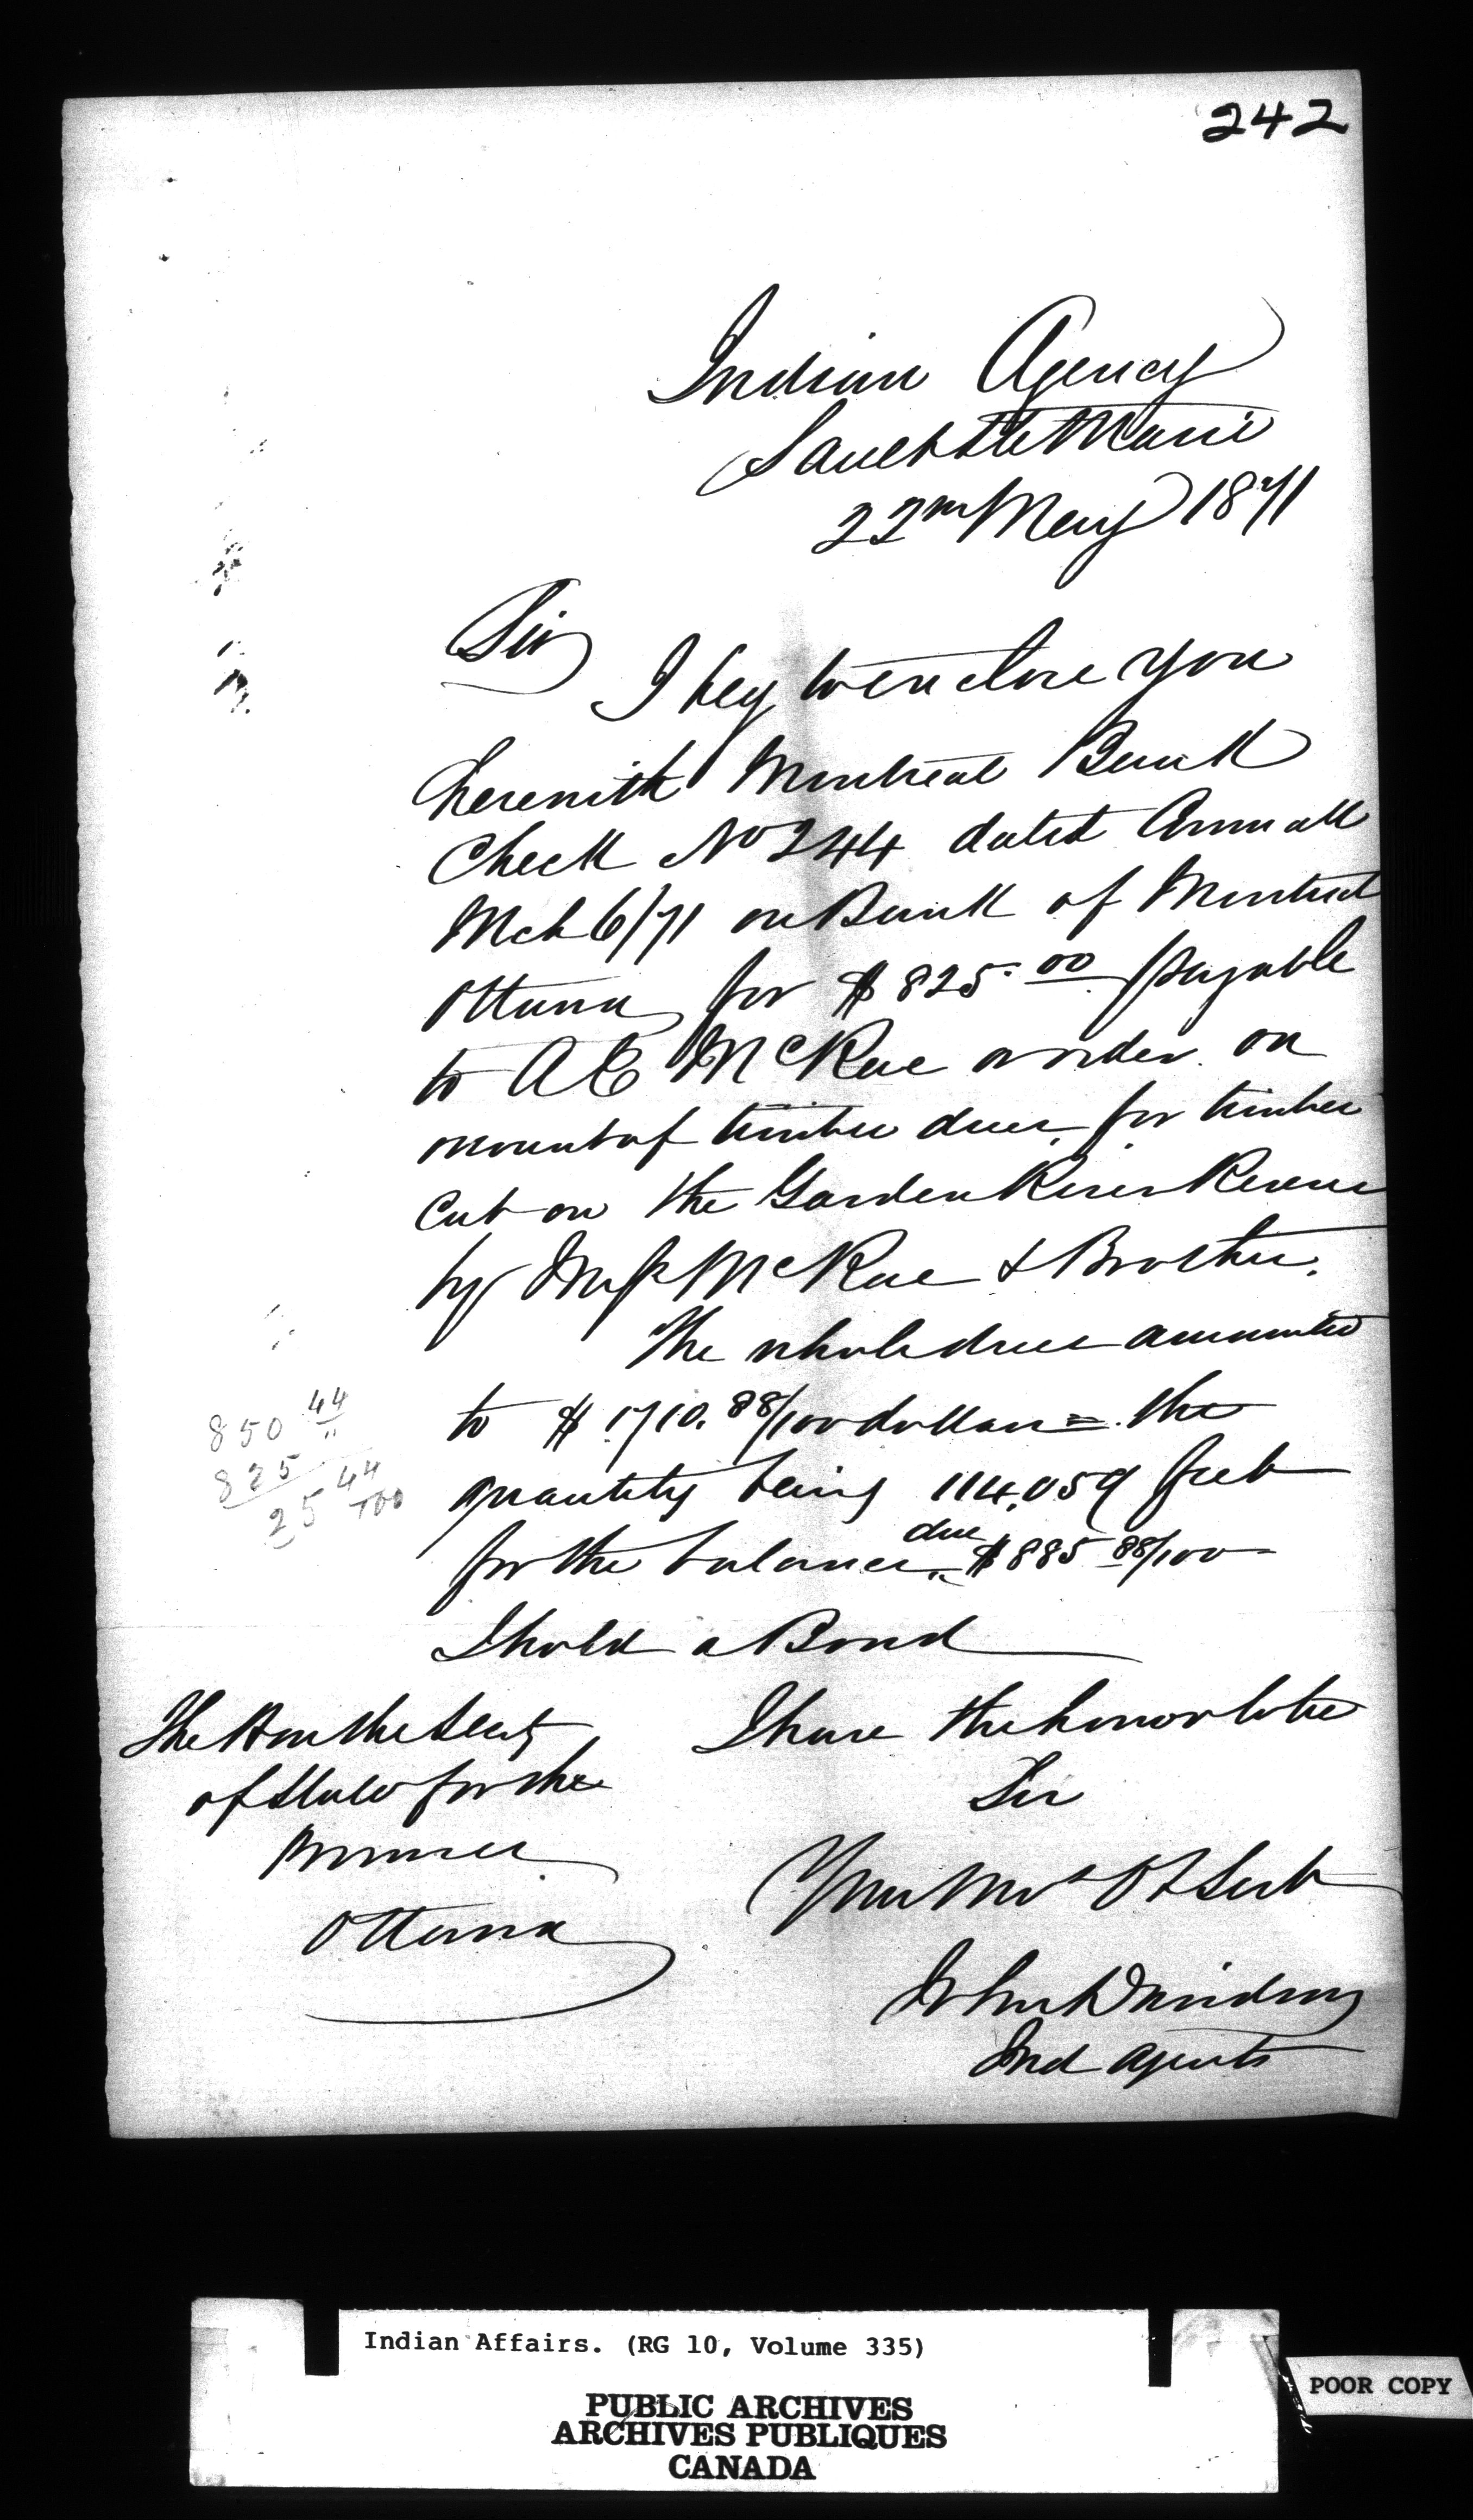 242
Indian Agency
Sault Ste Marie
22nd May 1871
Sir
I beg to enclose you
herewith Montreal Bank
Check No 244 dated
Mch 6/71 on Bank of Montreal
Ottawa for $825.00 payable
to A E McRae or order on
account of timber dues for timber
cut on the Garden River Reserve
by McRae & Brother.
The whole dues amounted
to $1710.88/100 dollars = the
quantity being 114,059 feet
for the balance due $885 88/100
I hold a Bond
850 44
825
25 44/100
I have the honor to be
Sir
Your Mo Ob Sert
John Davidson
Ind Agent
The Hon the Secty
of State for the
Provinces
Ottawa
Indian Affairs. (RG 10, Volume 335)
PUBLIC ARCHIVES
ARCHIVES PUBLIQUES
CANADA
POOR COPY